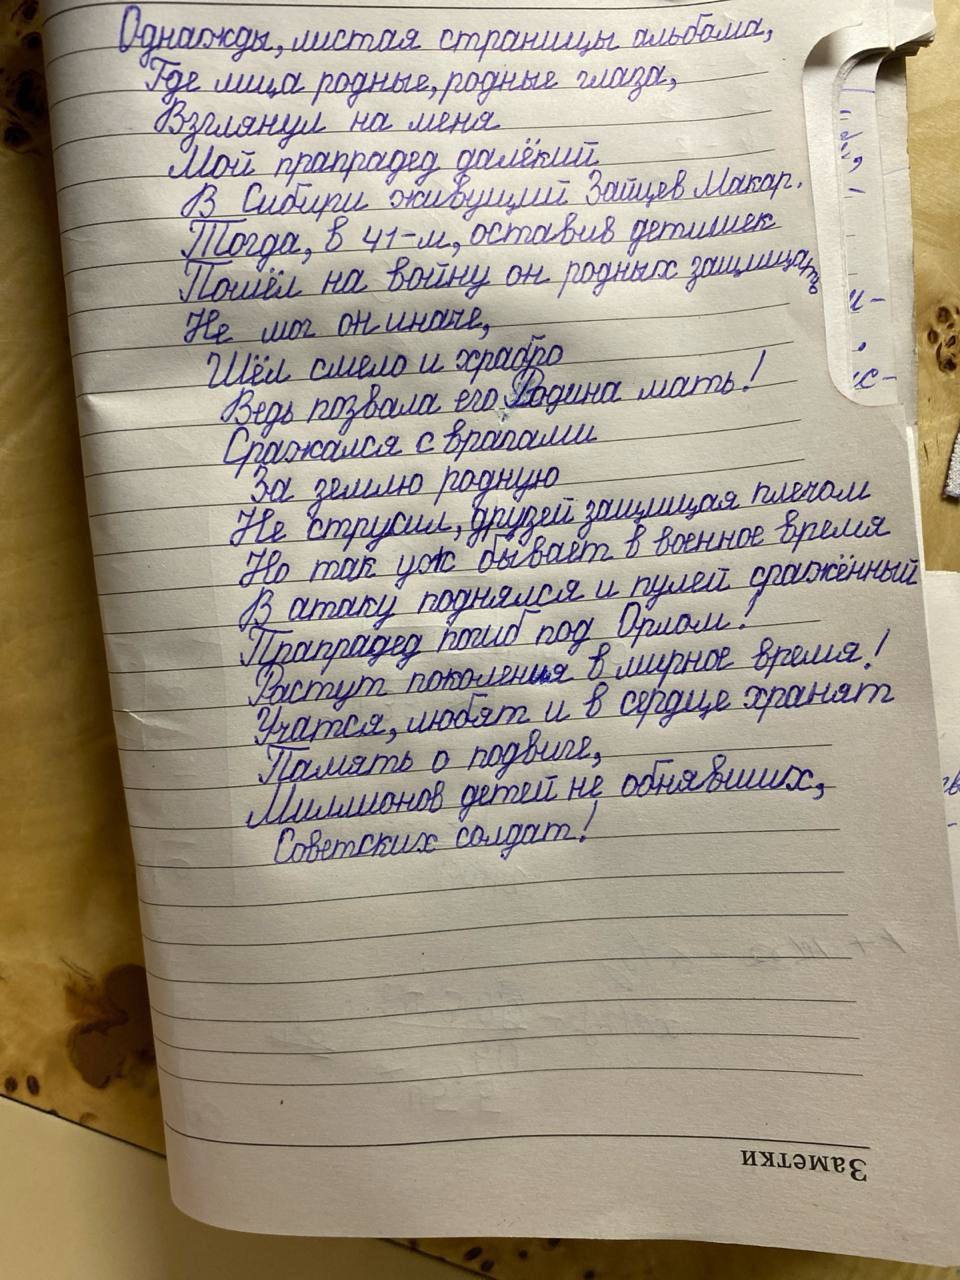 Однажды, листая страницы альбома,
Где лица родные, родные глаза,
Взглянул на меня
Мой прапрадед далёкий
В Сибири живущий Зайцев Макар.
Тогда, в 41-м, оставив детишек
Пошёл на войну он родных защищать
Не мог он иначе,
Шёл смело и храбро
Ведь позвала его Родина мать!
Сражался с врагами
За землю родную
Не струсил, друзей защищая плечом
Но так уж бывает в военное время
В атаку поднялся и пулей сражённый
Прапрадед погиб под Орлом!
Растут поколения в мирное время!
Учатся, любят и в сердце хранят
Память о подвиге,
Миллионов детей не обнявших,
Советских солдат!
Заметки